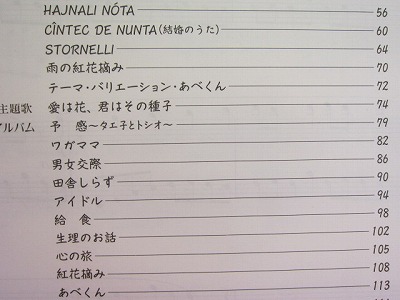 HAJNALI NÓTA 56
CÎNTEC DE NUNTA(結婚のうた) 60
STORNELLI 64
雨の紅花摘み 70
テーマ・バリエーション・あべくん 72
主題歌 愛は花、君はその種子 74
アルバム 予 感〜タエ子とトシオ〜 79
ワガママ 82
男女交際 86
田舎しらず 90
アイドル 94
給 食 98
生理のお話 102
心の旅 105
紅花摘み 108
あべくん 113